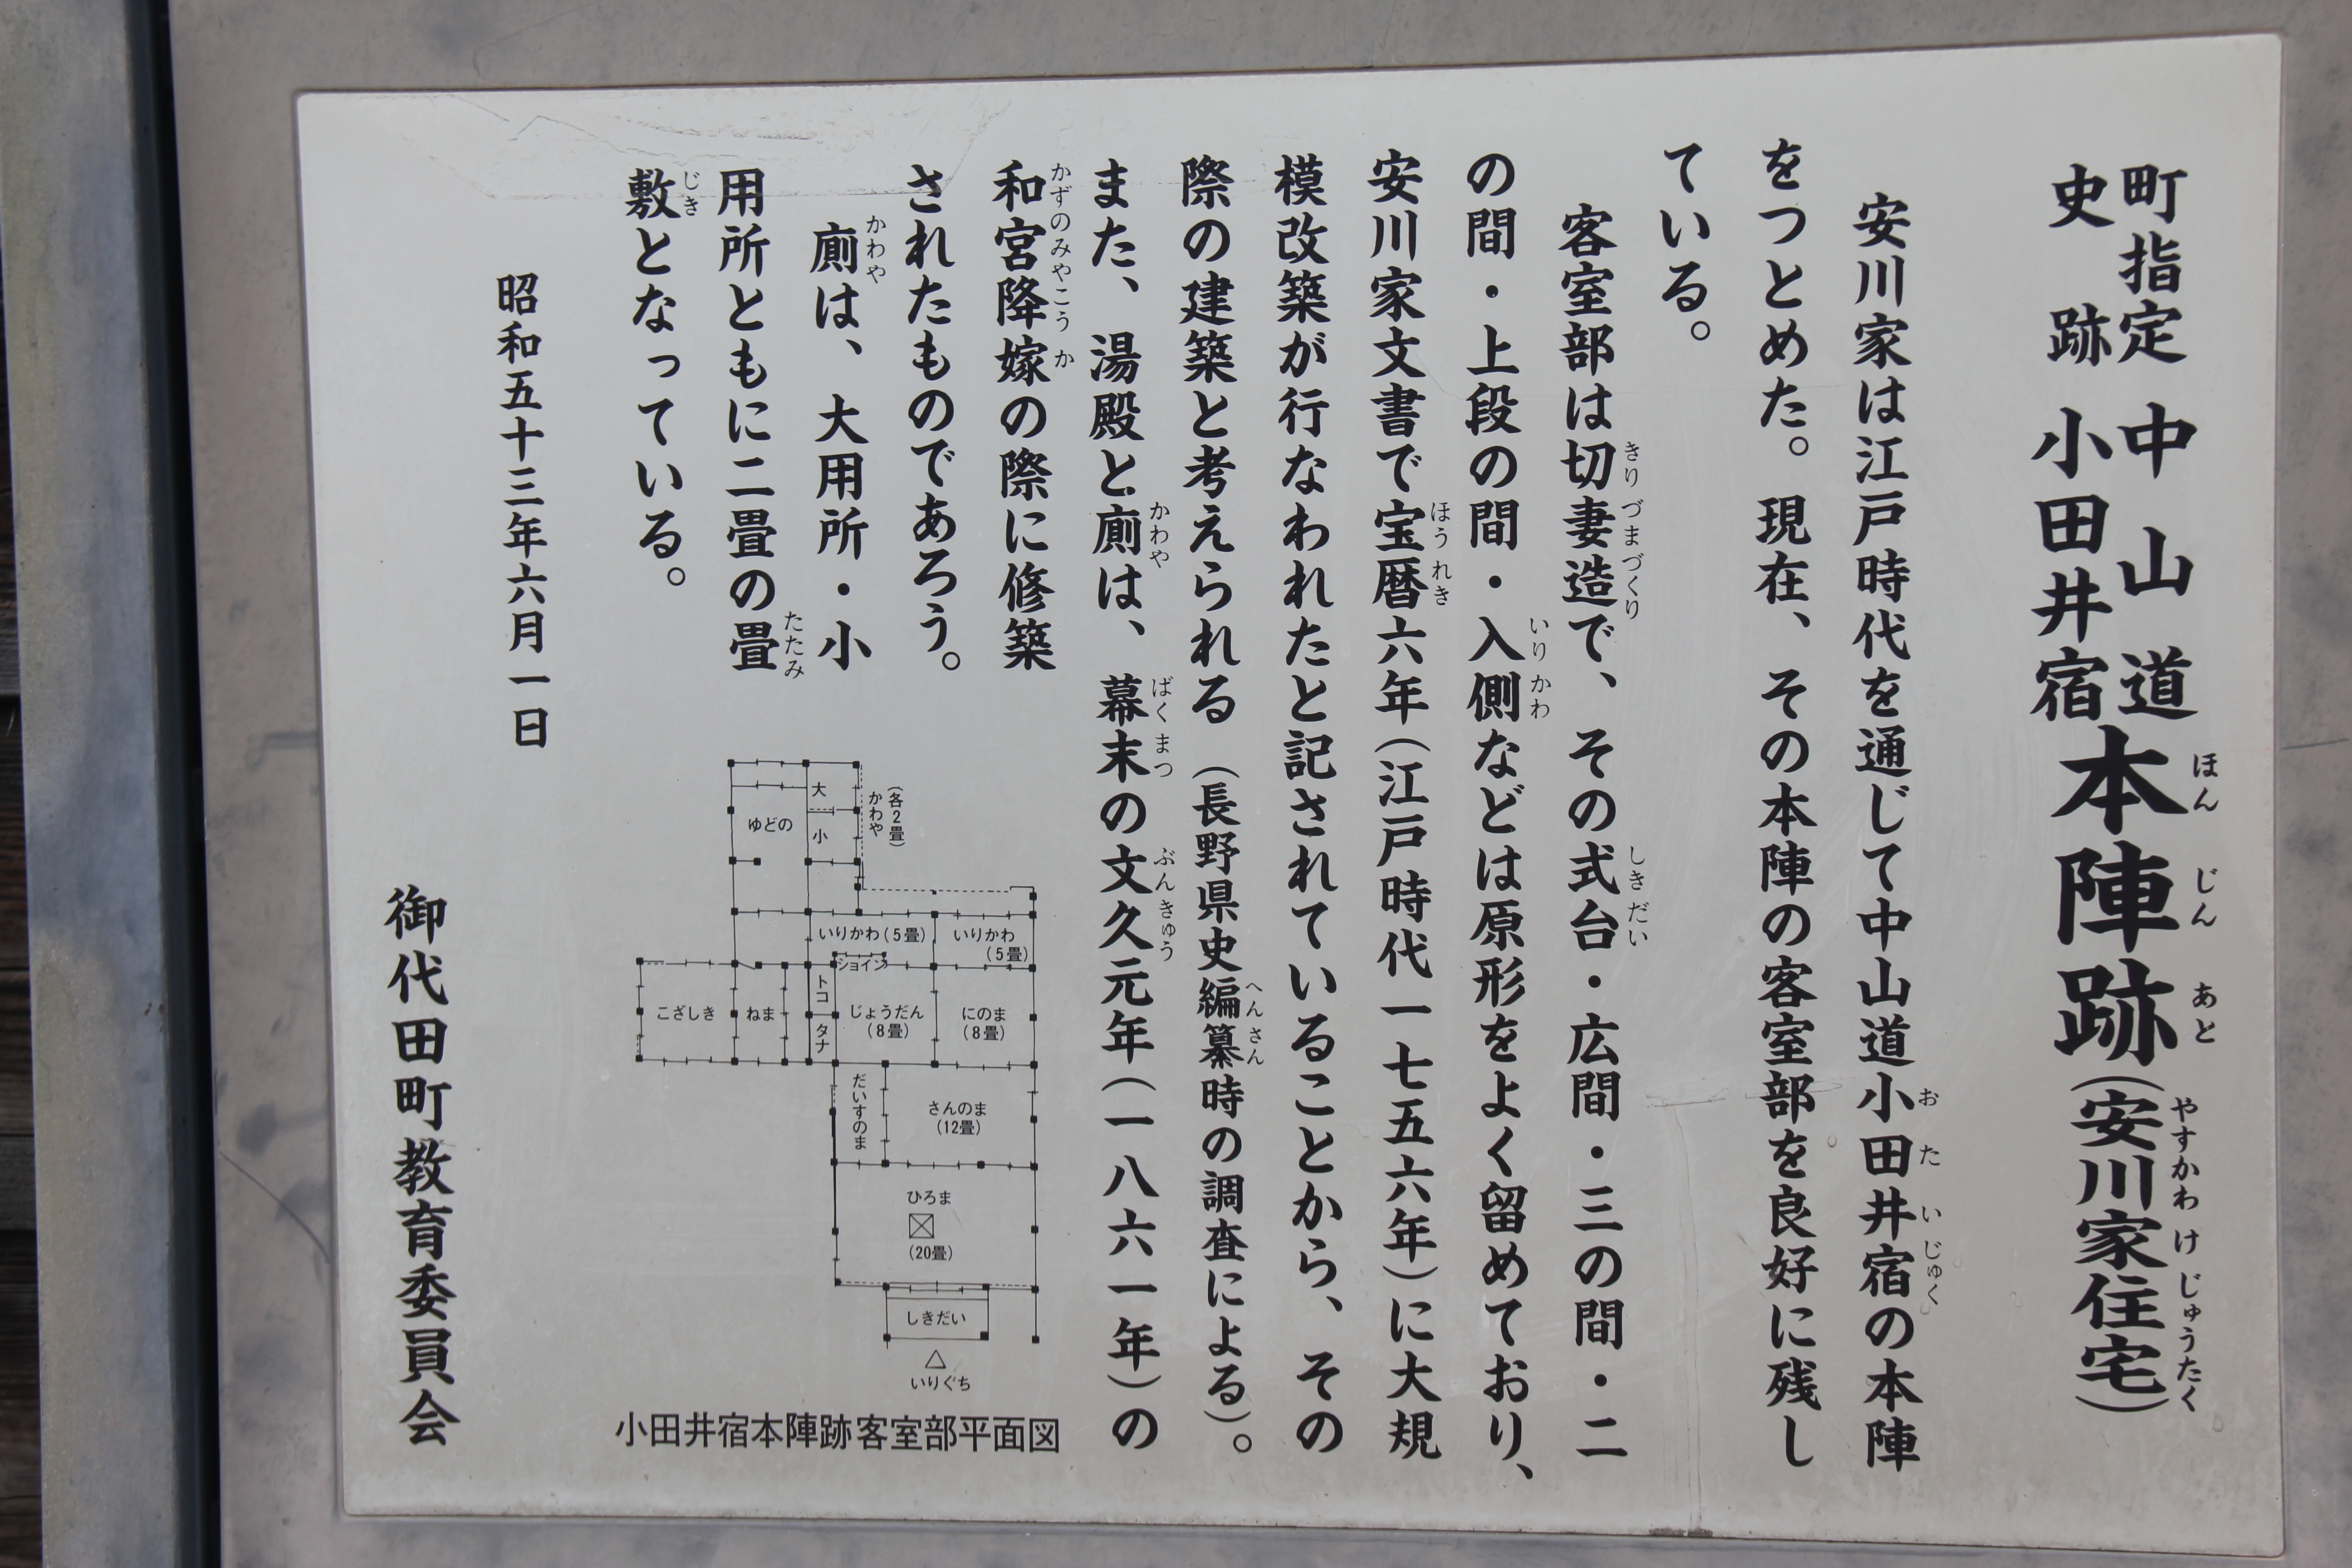 町指定
史跡
中山道
小田井宿
本陣跡(安川家住宅)
ほんじんあと
やすかわけじゅうたく
安川家は江戸時代を通じて中山道小田井宿の本陣
おたいじゅく
をつとめた。現在、その本陣の客室部を良好に残し
ている。
客室部は切妻造で、その式台・広間・三の間・二
きりづまづくり
しきだい
の間・上段の間・入側などは原形をよく留めており、
いりかわ
安川家文書で宝暦六年(江戸時代一七五六年)に大規
ほうれき
模改築が行なわれたと記されていることから、その
際の建築と考えられる(長野県史編纂時の調査による)。
へんさん
また、湯殿と廁は、幕末の文久元年(一八六一年)の
かわや
ばくまつ
ぶんきゅう
和宮降嫁の際に修築
かずのみやこうか
されたものであろう。
廁は、大用所・小
かわや
用所ともに二畳の畳
たたみ
敷となっている。
じき
昭和五十三年六月一日
御代田町教育委員会
(各2畳)
かわや
大
小
ゆどの
いりかわ(5畳)
いりかわ
(5畳)
ショイン
トコ
タナ
こざしき
ねま
じょうだん
(8畳)
にのま
(8畳)
だいすのま
さんのま
(12畳)
ひろま
(20畳)
しきだい
いりぐち
小田井宿本陣跡客室部平面図